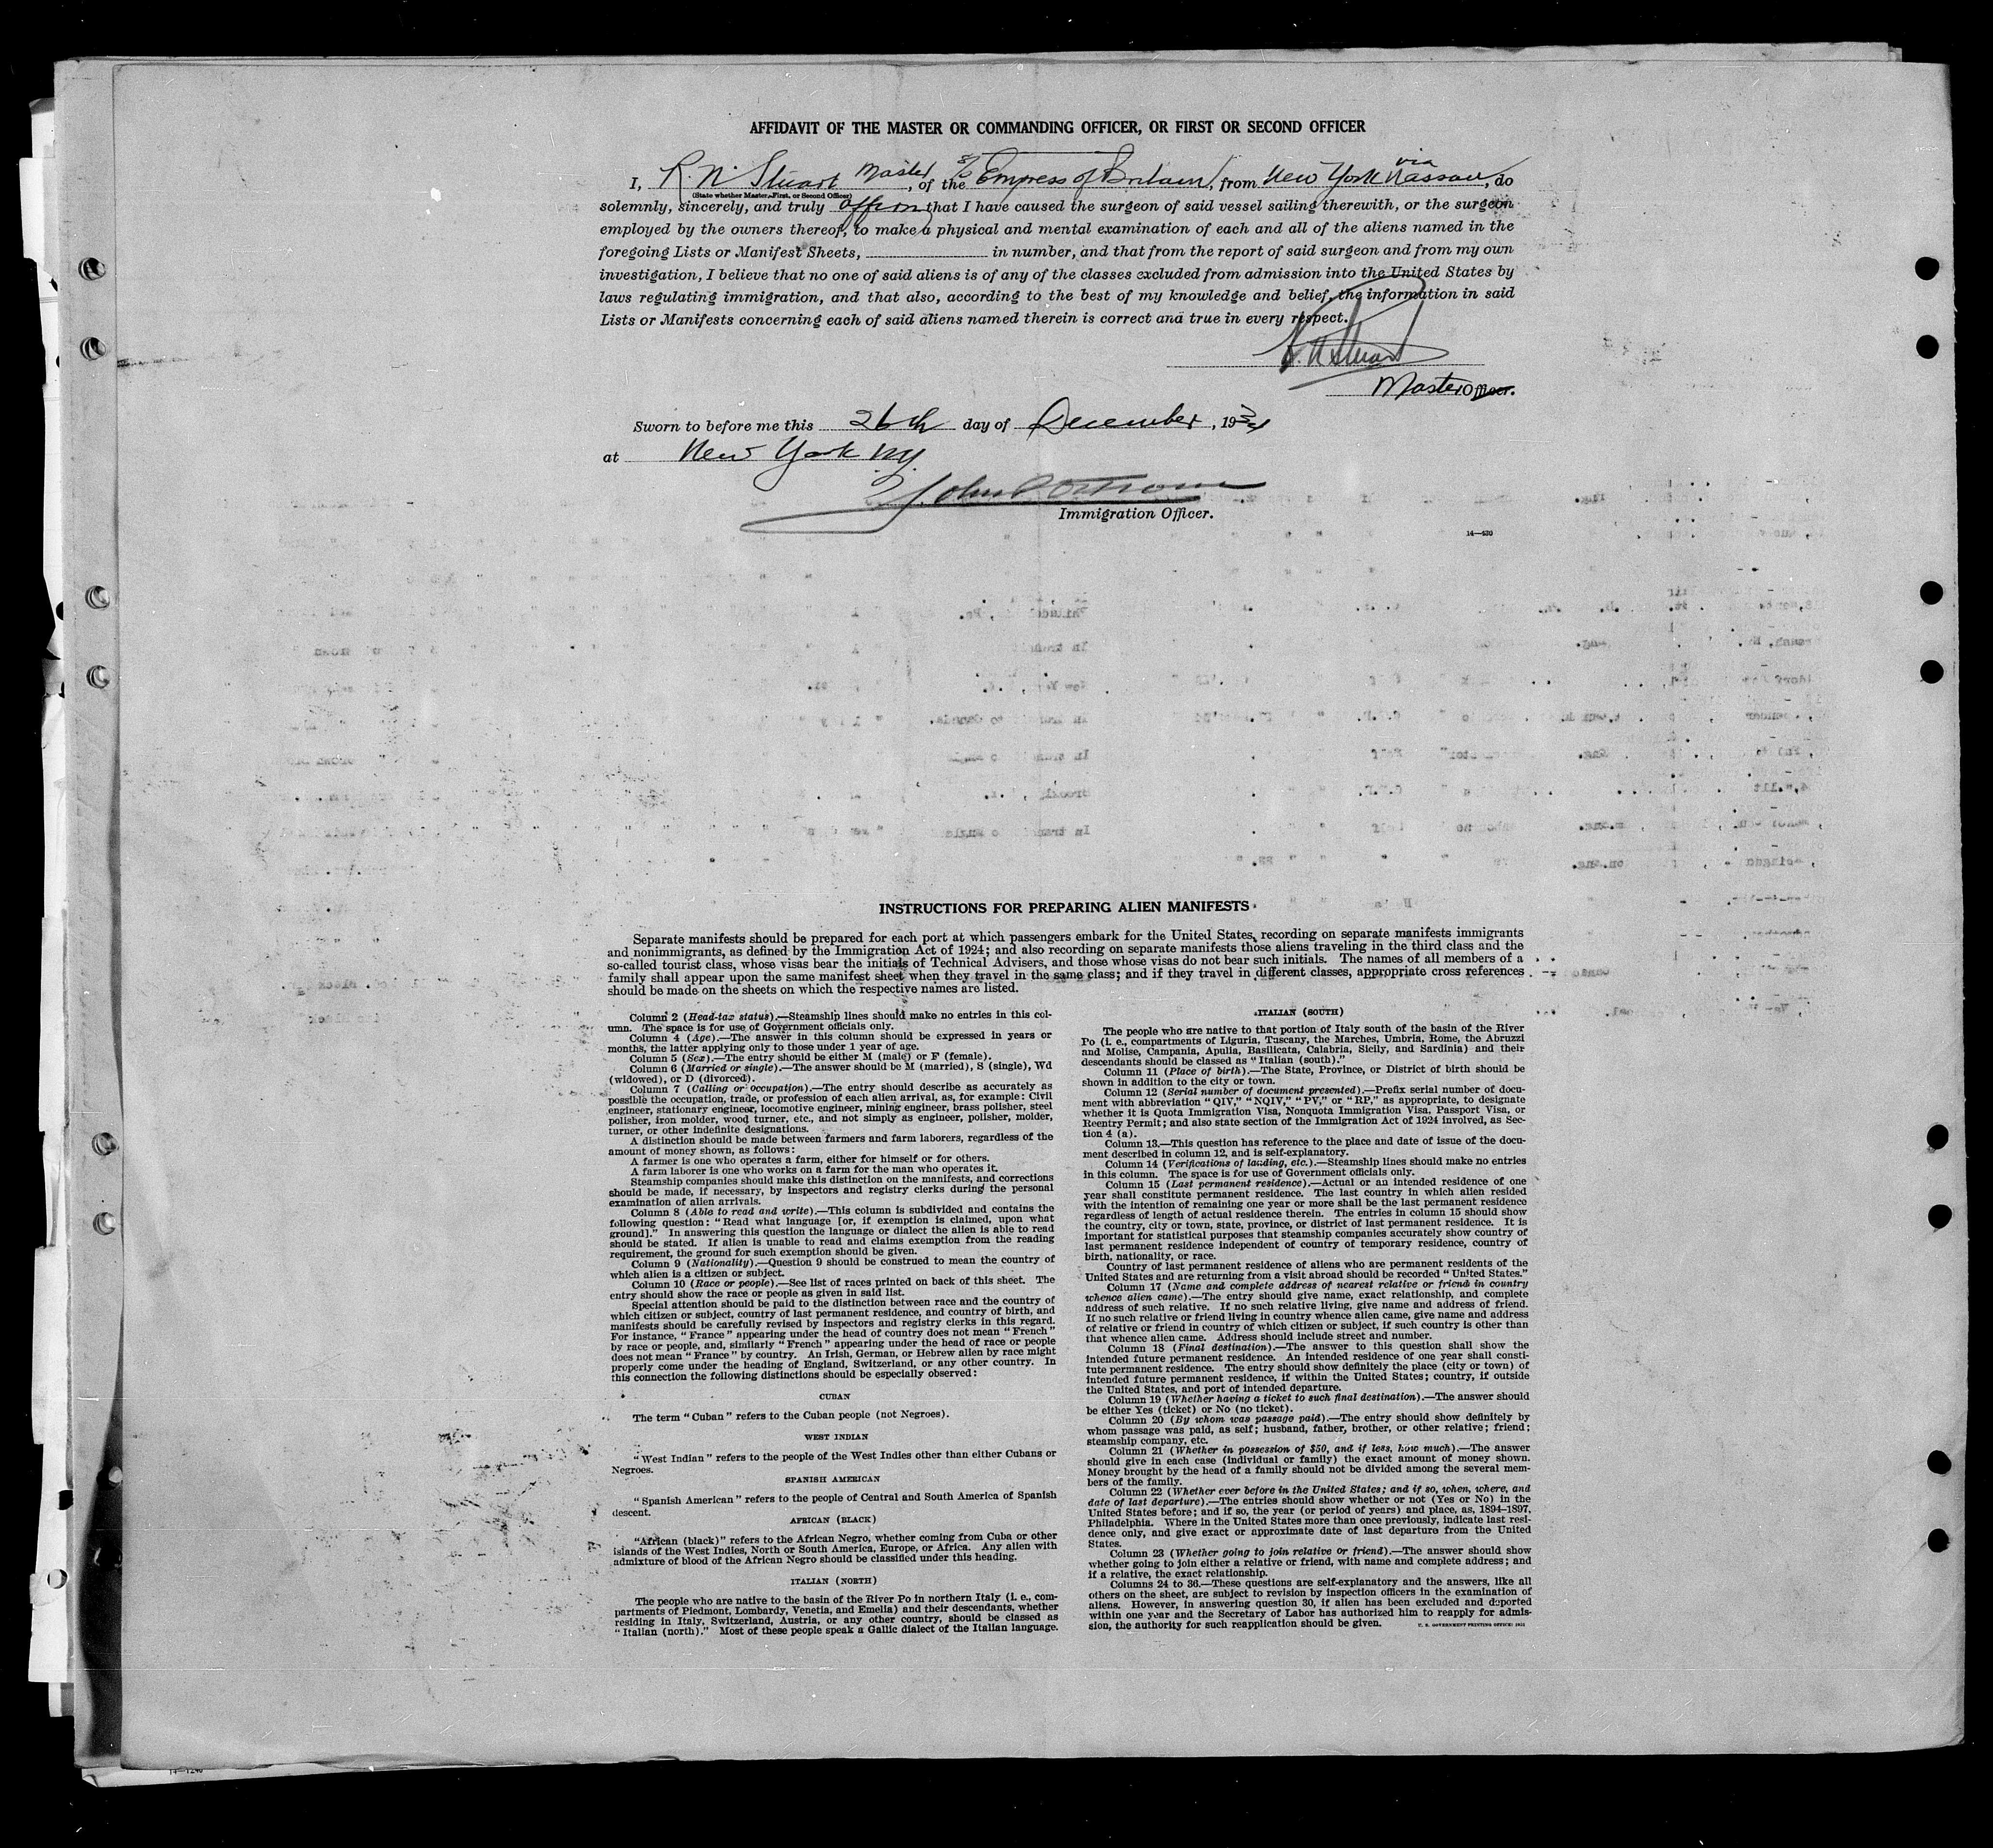 AFFIDAVIT OF THE MASTER OR COMMANDING OFFICER, OR FIRST OR SECOND OFFICER
I, R. N. Stuart Master, of the S/S Empress of Britain, from New York via Nassau, do
(State whether Master, First, or Second Officer)
solemnly, sincerely, and truly affirm that I have caused the surgeon of said vessel sailing therewith, or the surgeon
employed by the owners thereof, to make a physical and mental examination of each and all of the aliens named in the
foregoing Lists or Manifest Sheets, in number, and that from the report of said surgeon and from my own
investigation, I believe that no one of said aliens is of any of the classes excluded from admission into the United States by
laws regulating immigration, and that also, according to the best of my knowledge and belief, the information in said
Lists or Manifests concerning each of said aliens named therein is correct and true in every respect.
R. N. Stuart
Master Officer.
Sworn to before me this 26th day of December, 1934
at New York N.Y.
John
Immigration Officer.
14—430
INSTRUCTIONS FOR PREPARING ALIEN MANIFESTS
Separate manifests should be prepared for each port at which passengers embark for the United States, recording on separate manifests immigrants
and nonimmigrants, as defined by the Immigration Act of 1924; and also recording on separate manifests those aliens traveling in the third class and the
so-called tourist class, whose visas bear the initials of Technical Advisers, and those whose visas do not bear such initials. The names of all members of a
family shall appear upon the same manifest sheet when they travel in the same class; and if they travel in different classes, appropriate cross references
should be made on the sheets on which the respective names are listed.
Column 2 (Head-tax status).—Steamship lines should make no entries in this col-
umn. The space is for use of Government officials only.
Column 4 (Age).—The answer in this column should be expressed in years or
months, the latter applying only to those under 1 year of age.
Column 5 (Sex).—The entry should be either M (male) or F (female).
Column 6 (Married or single).—The answer should be M (married), S (single), Wd
(widowed), or D (divorced).
Column 7 (Calling or occupation).—The entry should describe as accurately as
possible the occupation, trade, or profession of each alien arrival, as, for example: Civil
engineer, stationary engineer, locomotive engineer, mining engineer, brass polisher, steel
polisher, iron molder, wood turner, etc., and not simply as engineer, polisher, molder,
turner, or other indefinite designations.
A distinction should be made between farmers and farm laborers, regardless of the
amount of money shown, as follows:
A farmer is one who operates a farm, either for himself or for others.
A farm laborer is one who works on a farm for the man who operates it.
Steamship companies should make this distinction on the manifests, and corrections
should be made, if necessary, by inspectors and registry clerks during the personal
examination of alien arrivals.
Column 8 (Able to read and write).—This column is subdivided and contains the
following question: "Read what language [or, if exemption is claimed, upon what
ground]." In answering this question the language or dialect the alien is able to read
should be stated. If alien is unable to read and claims exemption from the reading
requirement, the ground for such exemption should be given.
Column 9 (Nationality).—Question 9 should be construed to mean the country of
which alien is a citizen or subject.
Column 10 (Race or people).—See list of races printed on back of this sheet. The
entry should show the race or people as given in said list.
Special attention should be paid to the distinction between race and the country of
which citizen or subject, country of last permanent residence, and country of birth, and
manifests should be carefully revised by inspectors and registry clerks in this regard.
For instance, "France" appearing under the head of country does not mean "French"
by race or people, and, similarly "French" appearing under the head of race or people
does not mean "France" by country. An Irish, German, or Hebrew alien by race might
properly come under the heading of England, Switzerland, or any other country. In
this connection the following distinctions should be especially observed:
CUBAN
The term "Cuban" refers to the Cuban people (not Negroes).
WEST INDIAN
"West Indian" refers to the people of the West Indies other than either Cubans or
Negroes.
SPANISH AMERICAN
"Spanish American" refers to the people of Central and South America of Spanish
descent.
AFRICAN (BLACK)
"African (black)" refers to the African Negro, whether coming from Cuba or other
islands of the West Indies, North or South America, Europe, or Africa. Any alien with
admixture of blood of the African Negro should be classified under this heading.
ITALIAN (NORTH)
The people who are native to the basin of the River Po in northern Italy (i. e., com-
partments of Piedmont, Lombardy, Venetia, and Emelia) and their descendants, whether
residing in Italy, Switzerland, Austria, or any other country, should be classed as
"Italian (north)." Most of these people speak a Gallic dialect of the Italian language.
ITALIAN (SOUTH)
The people who are native to that portion of Italy south of the basin of the River
Po (i. e., compartments of Liguria, Tuscany, the Marches, Umbria, Rome, the Abruzzi
and Molise, Campania, Apulia, Basilicata, Calabria, Sicily, and Sardinia) and their
descendants should be classed as "Italian (south)."
Column 11 (Place of birth).—The State, Province, or District of birth should be
shown in addition to the city or town.
Column 12 (Serial number of document presented).—Prefix serial number of docu-
ment with abbreviation "QIV," "NQIV," "PV," or "RP," as appropriate, to designate
whether it is Quota Immigration Visa, Nonquota Immigration Visa, Passport Visa, or
Reentry Permit; and also state section of the Immigration Act of 1924 involved, as Sec-
tion 4 (a).
Column 13.—This question has reference to the place and date of issue of the docu-
ment described in column 12, and is self-explanatory.
Column 14 (Verifications of landing, etc.).—Steamship lines should make no entries
in this column. The space is for use of Government officials only.
Column 15 (Last permanent residence).—Actual or an intended residence of one
year shall constitute permanent residence. The last country in which alien resided
with the intention of remaining one year or more shall be the last permanent residence
regardless of length of actual residence therein. The entries in column 15 should show
the country, city or town, state, province, or district of last permanent residence. It is
important for statistical purposes that steamship companies accurately show country of
last permanent residence independent of country of temporary residence, country of
birth, nationality, or race.
Country of last permanent residence of aliens who are permanent residents of the
United States and are returning from a visit abroad should be recorded "United States."
Column 17 (Name and complete address of nearest relative or friend in country
whence alien came).—The entry should give name, exact relationship, and complete
address of such relative. If no such relative living, give name and address of friend.
If no such relative or friend living in country whence alien came, give name and address
of relative or friend in country of which citizen or subject, if such country is other than
that whence alien came. Address should include street and number.
Column 18 (Final destination).—The answer to this question shall show the
intended future permanent residence. An intended residence of one year shall consti-
tute permanent residence. The entry should show definitely the place (city or town) of
intended future permanent residence, if within the United States; country, if outside
the United States, and port of intended departure.
Column 19 (Whether having a ticket to such final destination).—The answer should
be either Yes (ticket) or No (no ticket).
Column 20 (By whom was passage paid).—The entry should show definitely by
whom passage was paid, as self; husband, father, brother, or other relative; friend;
steamship company, etc.
Column 21 (Whether in possession of $50, and if less, how much).—The answer
should give in each case (individual or family) the exact amount of money shown.
Money brought by the head of a family should not be divided among the several mem-
bers of the family.
Column 22 (Whether ever before in the United States; and if so, when, where, and
date of last departure).—The entries should show whether or not (Yes or No) in the
United States before; and if so, the year (or period of years) and place, as, 1894-1897,
Philadelphia. Where in the United States more than once previously, indicate last resi-
dence only, and give exact or approximate date of last departure from the United
States.
Column 23 (Whether going to join relative or friend).—The answer should show
whether going to join either a relative or friend, with name and complete address; and
if a relative, the exact relationship.
Columns 24 to 36.—These questions are self-explanatory and the answers, like all
others on the sheet, are subject to revision by inspection officers in the examination of
aliens. However, in answering question 30, if alien has been excluded and deported
within one year and the Secretary of Labor has authorized him to reapply for admis-
sion, the authority for such reapplication should be given.
U. S. GOVERNMENT PRINTING OFFICE
14—1240